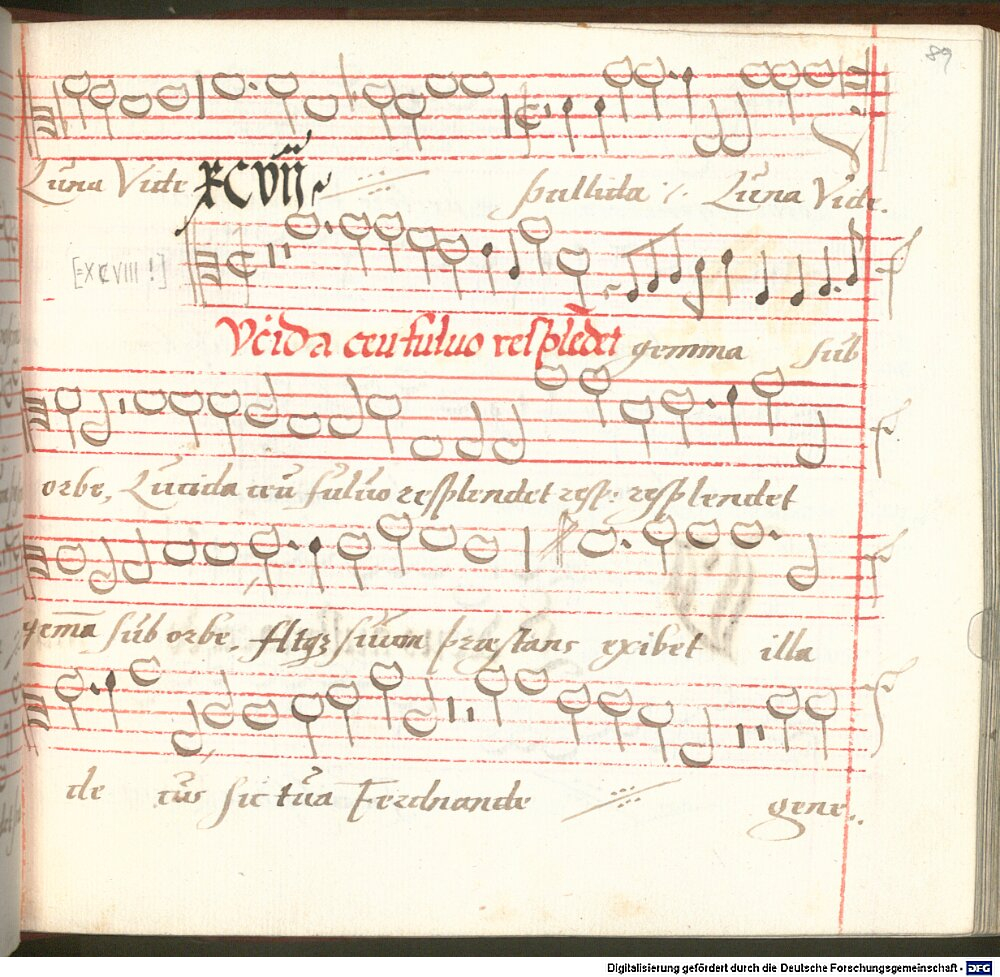 89
Lūna Vide pallida ·/. Lūna Vide.
XCVII
[=XCVIII!]
Vcida ceu fuluo resplēdet gemma sūb
orbe, Lūcida ceū fūlūo resplendet resp: resplendet
gem̄a sūb orbe, Atqz sūūm præstans exibet illa
de cūs sic tūa Ferdnande gene..
Digitalisierung gefördert durch die Deutsche Forschungsgemeinschaft - DFG